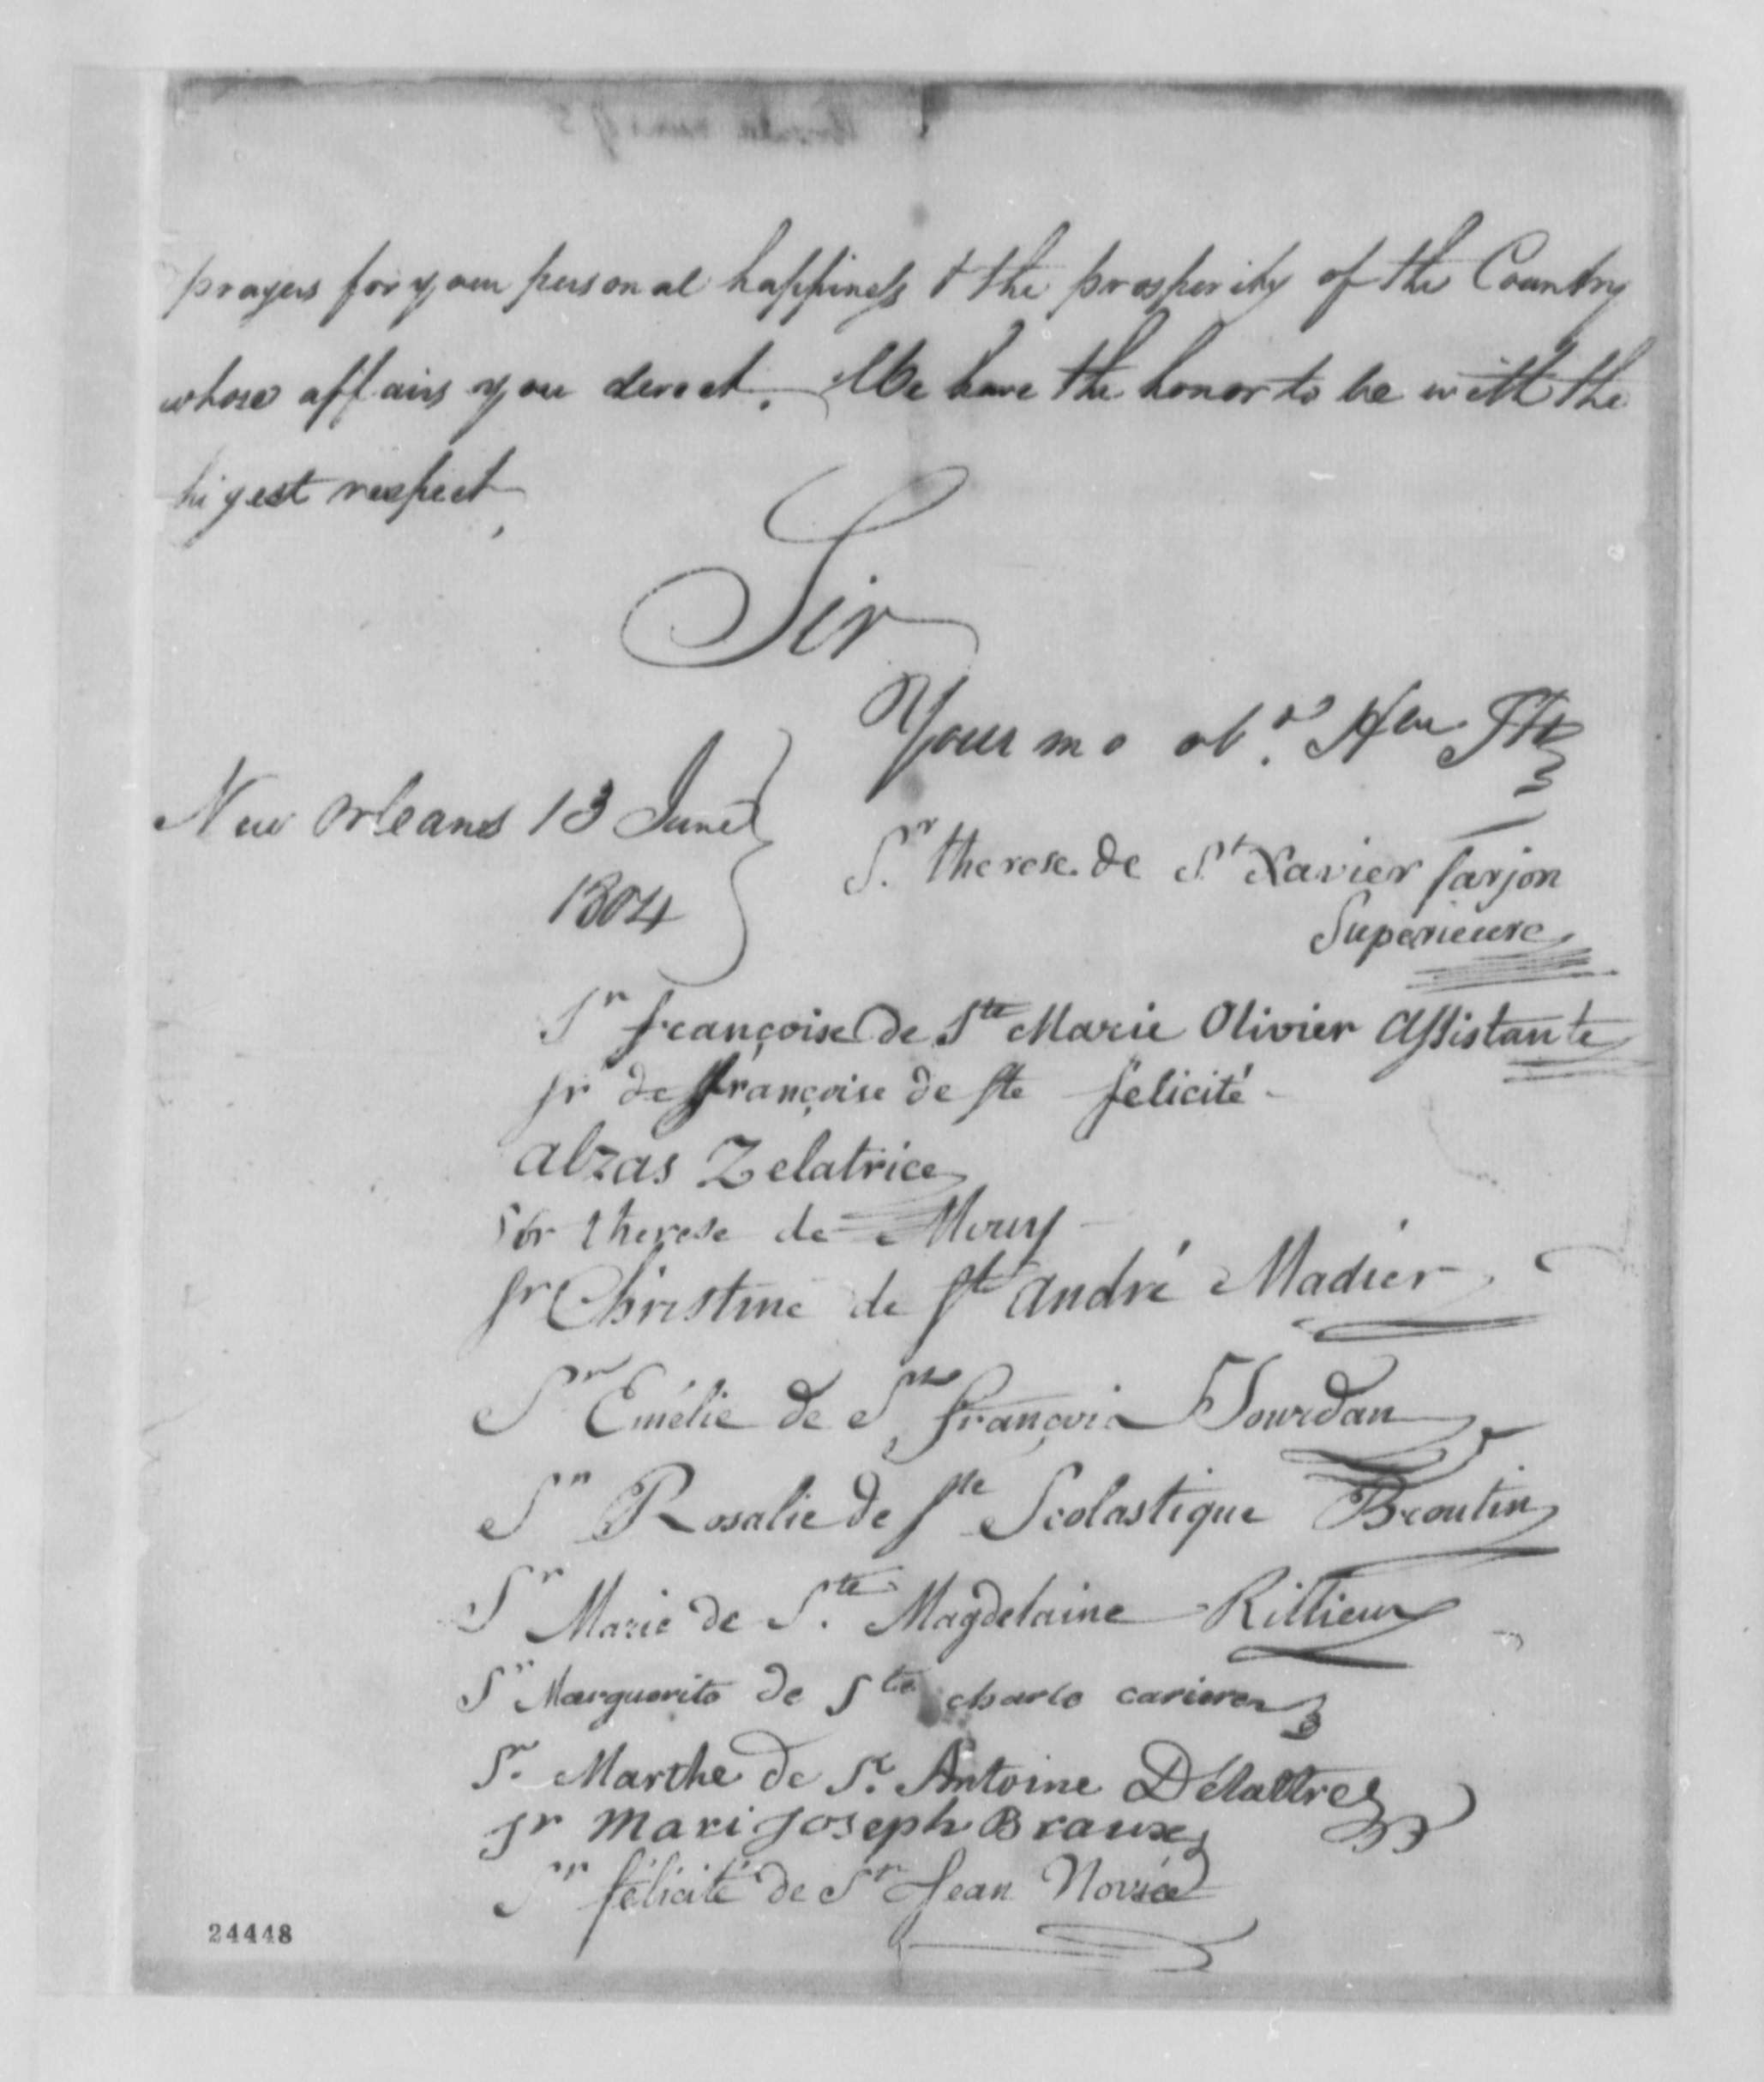 prayers for your personal happiness & the prosperity of the Country
whose affairs you derect. We have the honor to be with the
higest respect,
Sir
Your mo ob.t Hble Sts
New Orleans 13 June
1804
Sr. therese de St Xavier farjon
Superieure
Sr françoise de Ste Marie Olivier Assistante
sr de françoise de ste felicité
alzas Zelatrice
Sor therese de Mouy
sr Christine de st andré Madier
Sr Emélie de St françois Jourdan
Sr Rosalie de ste Scolastique Broutin
Sr Marie de S.te Magdelaine Rillieux
Sr Marguerite de Ste charle cariere
Sr. Marthe de St. Antoine Délattre
sr Mari joseph Braux
Sr félicité de St Jean Novice
24448